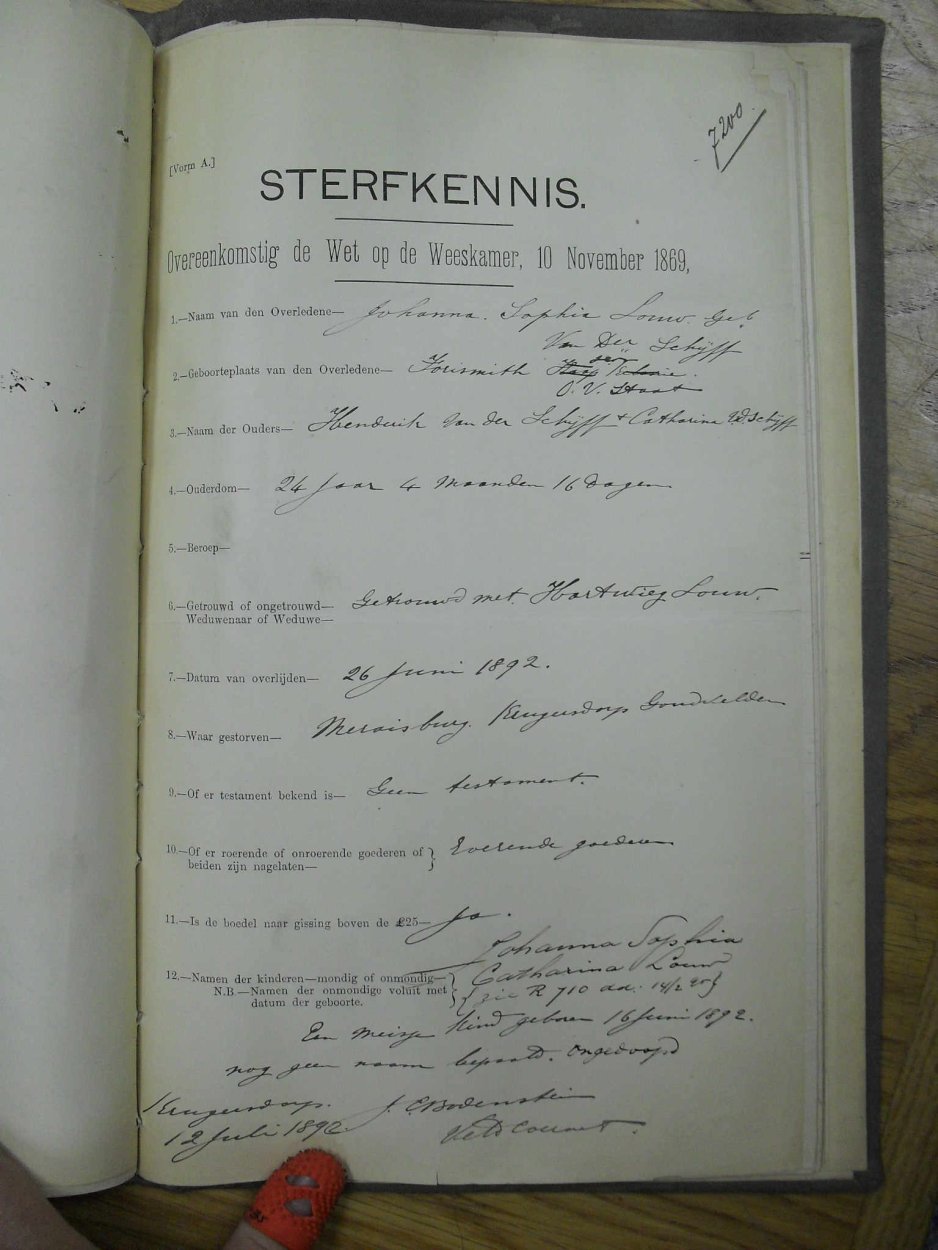 7200
[Vorm A.]
STERFKENNIS.
Overeenkomstig de Wet op de Weeskamer, 10 November 1869,
1.—Naam van den Overledene— Johanna. Sophia Louw. Geb
Van Der Schijff
2.—Geboorteplaats van den Overledene— Forismith
O. V. Staat
3.—Naam der Ouders— Henderik van der Schijff + Catharina v.d. Schijff
4.—Ouderdom— 24 Jaar 4 Maanden 16 dagen
5.—Beroep—
6.—Getrouwd of ongetrouwd— Getrouwd met. Hartwieg Louw.
Weduwenaar of Weduwe—
7.—Datum van overlijden— 26 Juni 1892.
8.—Waar gestorven— Meraisburg. Krugersdorp Goudvelden
9.—Of er testament bekend is— Geen testament.
10.—Of er roerende of onroerende goederen of } Roerende goederen
beiden zijn nagelaten—
11.—Is de boedel naar gissing boven de £25— Ja.
Johanna Sophia
12.—Namen der kinderen—mondig of onmondig— } Catharina Louw
N.B.—Namen der onmondige voluit met } {zie R 710 dd. 14/2 95}
datum der geboorte.
Een meisje kind geboren 16 Juni 1892.
nog geen naam bepaald. ongedoopd
Krugersdorp. J. C Bodenstein
12 Juli 1892 Veld Cornet.